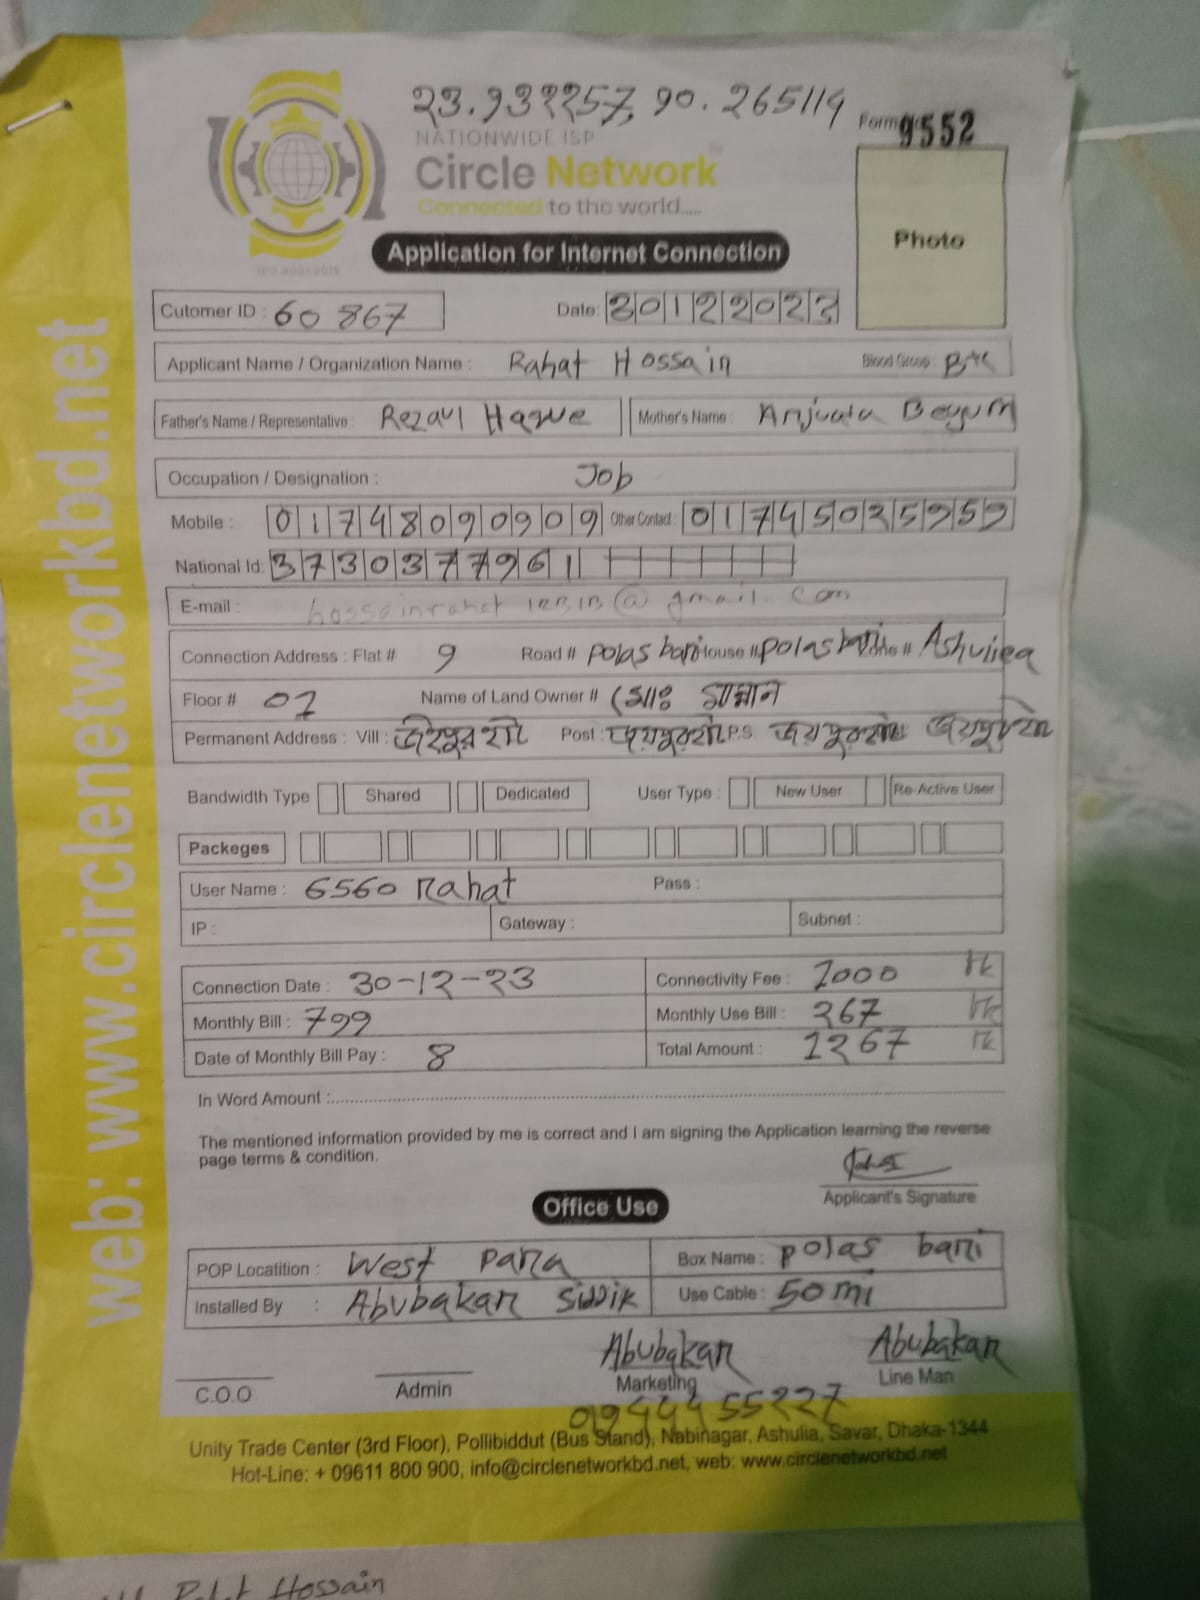 23.932257, 90.265119
Form 9552
NATIONWIDE ISP
Circle Network
Connected to the world.....
Photo
Application for Internet Connection
ISO 9001:2015
Cutomer ID : 60 867 Date: 30122023
Applicant Name / Organization Name : Rahat Hossain Blood Group :
Father's Name / Representative : Rezaul Haque Mother's Name : Begum
Occupation / Designation : Job
Mobile : 01748090909 Other Contact : 01745025959
National Id: 3730377961
E-mail : @ gmail. com
Connection Address : Flat # 9 Road # polas bari House # polas bari
Floor # 02 Name of Land Owner # মোঃ মান্নান
Permanent Address : Vill : Post : P.S.
Bandwidth Type Shared Dedicated User Type : New User Re-Active User
Packeges
User Name : 6560 Rahat Pass :
IP : Gateway : Subnet :
Connection Date : 30-12-23 Connectivity Fee : 1000 Tk
Monthly Bill : 799 Monthly Use Bill : 267 Tk
Date of Monthly Bill Pay : 8 Total Amount : 1267 Tk
In Word Amount :
The mentioned information provided by me is correct and I am signing the Application learning the reverse
page terms & condition.
Applicant's Signature
Office Use
POP Locatition : West para Box Name : polas bari
Installed By : Abubakar Siddik Use Cable : 50 mi
Abubakar Abubakar
C.O.O Admin Marketing Line Man
Unity Trade Center (3rd Floor), Pollibiddut (Bus Stand), Nabinagar, Ashulia, Savar, Dhaka-1344
Hot-Line: + 09611 800 900, info@circlenetworkbd.net, web: www.circlenetworkbd.net
web: www.circlenetworkbd.net
Hossain